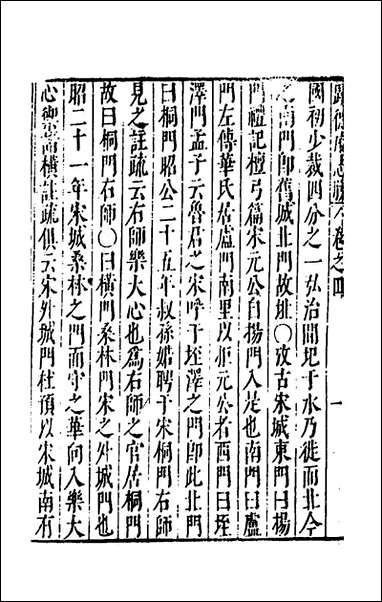 歸德府志卷之四
國初少裁四分之一弘治間圯于水乃徙而北今
之南門即舊城北門故址〇攷古宋城東門曰楊
門禮記檀弓篇宋元公自揚門入是也南門曰盧
門左傳華氏居盧門南里以佢元公者西門曰垤
澤門孟子云魯君之宋呼于垤澤之門即此北門
曰桐門昭公二十五年叔孫婼聘于宋桐門右師
見之註疏云右師樂大心也為右師之官居桐門
故曰桐門右師〇曰橫門桑林門宋之外城門也
昭二十一年宋城桑林之門而守之華向入樂大
心禦諸橫註疏俱云宋外城門杜預以宋城南有